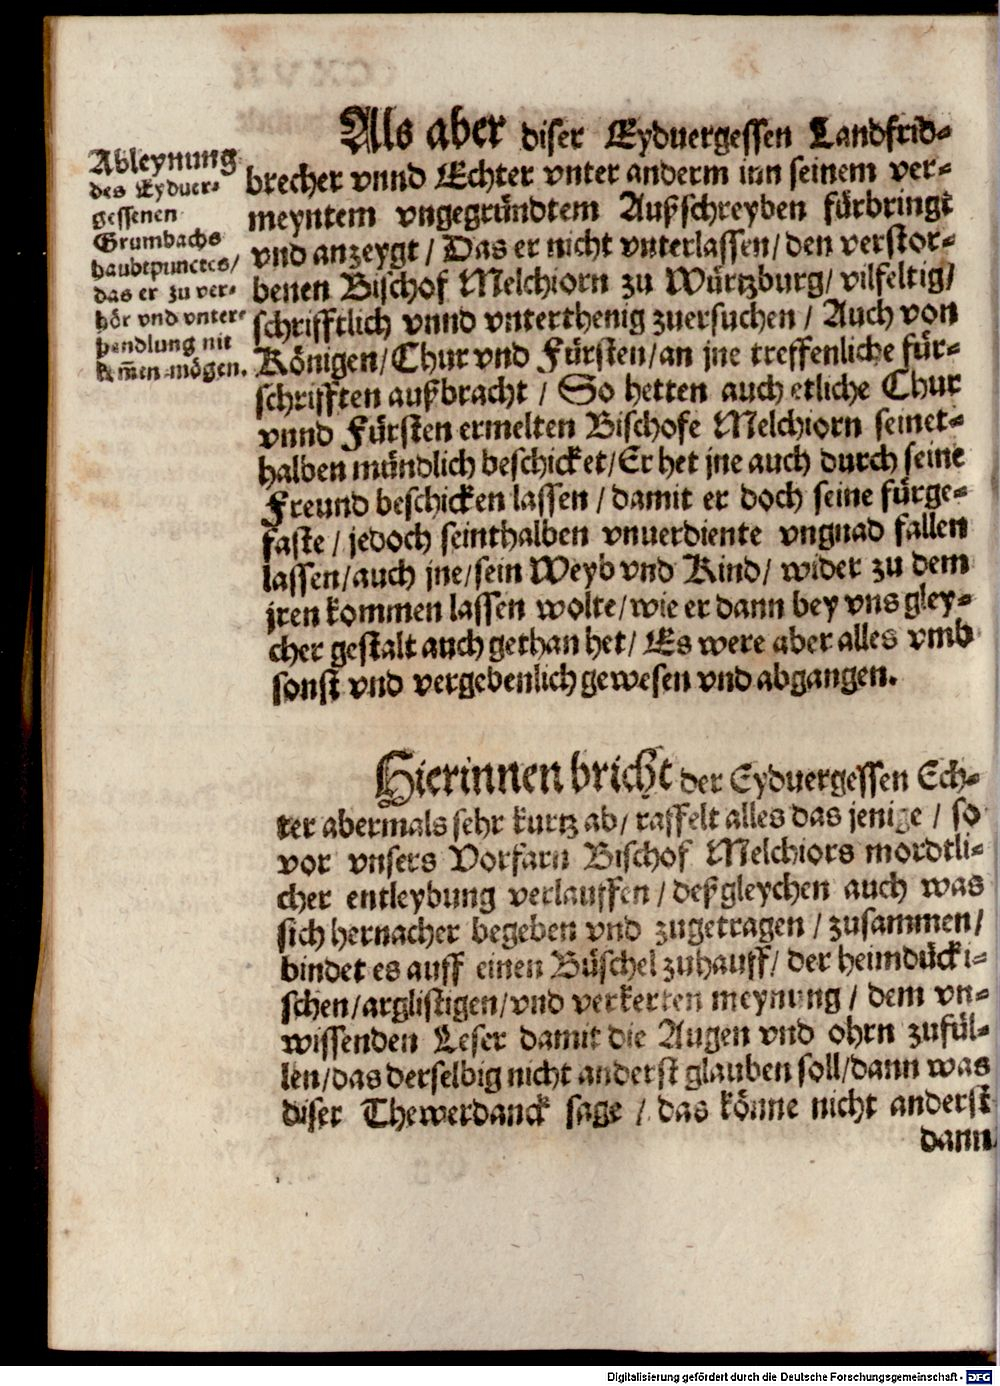 Ableynung
des Eyduer-
gessenen
Grumbachs
haubtpunctes/
das er zu ver-
hör vnd vnter-
handlung nit
kom̃en mögen.
Als aber diser Eyduergessen Landfrid-
brecher vnnd Echter vnter anderm inn seinem ver-
meyntem vngegründtem Außschreyben fürbringt
vnd anzeygt / Das er nicht vnterlassen / den verstor-
benen Bischof Melchiorn zu Würtzburg / vilfeltig /
schrifftlich vnnd vnterthenig zuersuchen / Auch von
Königen / Chur vnd Fürsten / an jne treffenliche für-
schrifften außbracht / So hetten auch etliche Chur
vnnd Fürsten ermelten Bischofe Melchiorn seinet-
halben mündlich beschicket / Er het jne auch durch seine
Freund beschicken lassen / damit er doch seine fürge-
faste / jedoch seinthalben vnuerdiente vngnad fallen
lassen / auch jne / sein Weyb vnd Kind / wider zu dem
jren kommen lassen wolte / wie er dann bey vns gley-
cher gestalt auch gethan het / Es were aber alles vmb
sonst vnd vergebenlich gewesen vnd abgangen.
Hierinnen bricht der Eyduergessen Ech-
ter abermals sehr kurtz ab / raffelt alles das jenige / so
vor vnsers Vorfarn Bischof Melchiors mordtli-
cher entleybung verlauffen / deßgleychen auch was
sich hernacher begeben vnd zugetragen / zusammen /
bindet es auff einen Büschel zuhauff / der heimdücki-
schen / arglistigen / vnd verkerten meynung / dem vn-
wissenden Leser damit die Augen vnd ohrn zufül-
len / das derselbig nicht anderst glauben soll / dann was
diser Thewerdanck sage / das könne nicht anderst
dann
Digitalisierung gefördert durch die Deutsche Forschungsgemeinschaft - DFG